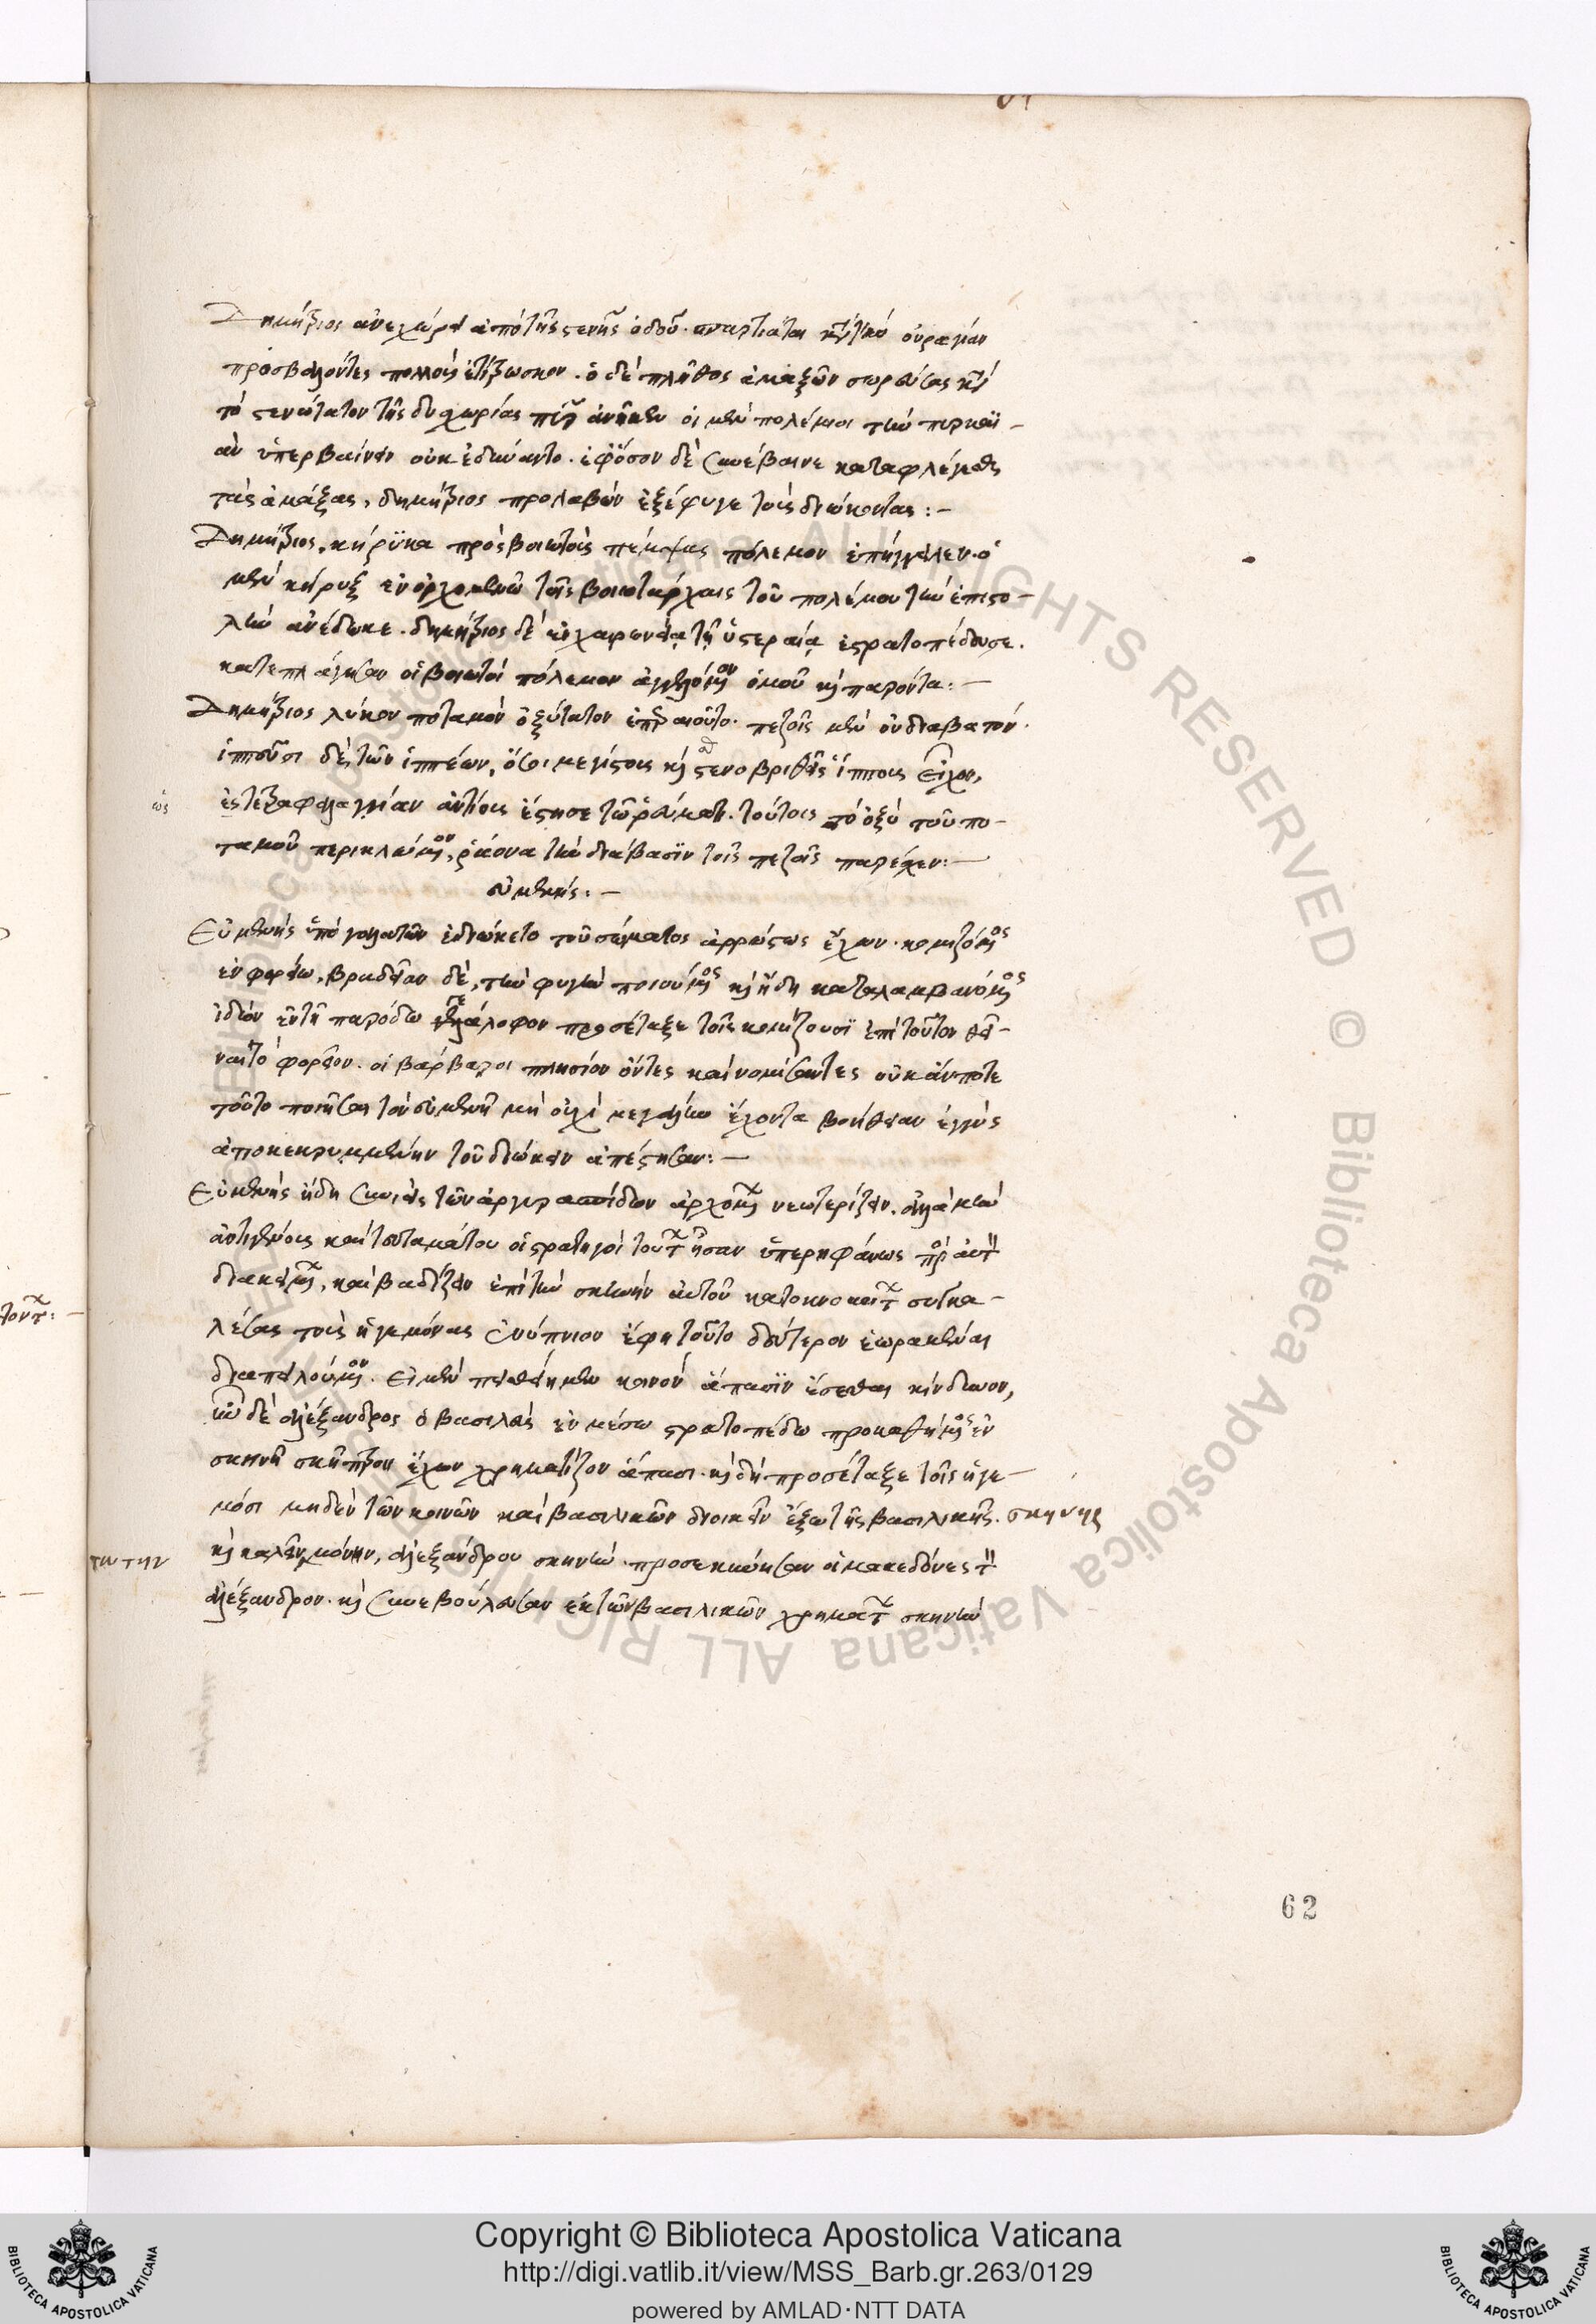 Δημήτριος ἀνεχώρει ἀπὸ τῆς στενῆς ὁδοῦ. σπαρτιᾶται κατὰ τὴν οὐραγίαν
προσβαλόντες πολλοὺς ἐτίτρωσκον. ὁ δὲ πλῆθος ἁμαξῶν σωρεύσας κατὰ
τὸ στενώτατον τῆς δυσχωρίας πῦρ ἀνῆκεν οἱ μὲν πολέμιοι τὴν πυρκαϊ-
ὰν ὑπερβαίνειν οὐκ ἐδύναντο. ἐφόσον δὲ συνέβαινε καταφλέγεσθαι
τὰς ἁμάξας, δημήτριος προλαβὼν ἐξέφυγε τοὺς διώκοντας:-
Δημήτριος, κήρυκα πρὸς βοιωτοὺς πέμψας πόλεμον ἐπήγγειλεν. ὁ
μὲν κῆρυξ ἐν ὀρχομενῷ τοῖς βοιωτάρχαις τοῦ πολέμου τὴν ἐπιστο-
λὴν ἀνέδωκε. δημήτριος δὲ ἐν χαιρωνείᾳ τῇ ὑστεραίᾳ ἐστρατοπέδευσε.
κατεπλάγησαν οἱ βοιωτοὶ πόλεμον ἀγγελλόμενον ὁμοῦ καὶ παρόντα:-
Δημήτριος λύκον ποταμὸν ὀξύτατον ἐπεραιοῦτο. πεζοῖς μὲν οὐ διαβατόν.
ἱππεῦσι δὲ, τῶν ἱππέων, ὅσοι μεγίστους καὶ στενοβριθεῖς ἵππους εἶχον,
ὡς
ἐς τετραφαλαγγίαν ἀντίους ἔστησε τῷ ῥεύματι. τούτοις τὸ ὀξὺ τοῦ πο-
ταμοῦ περικλώμενον, ῥάονα τὴν διάβασιν τοῖς πεζοῖς παρέχειν:-
εὐμενής:-
Εὐμενὴς ὑπὸ γαλατῶν ἐδιώκετο τοῦ σώματος ἀρρώστως ἔχων. κομιζόμενος
ἐν φορείῳ. βραδεῖαν δὲ, τὴν φυγὴν ποιούμενος καὶ ἤδη καταλαμβανόμενος
ἰδὼν ἐν τῇ παρόδῳ γεώλοφον προσέταξε τοῖς κομίζουσι ἐπὶ τοῦτον θεῖ-
ναι τὸ φορεῖον. οἱ βάρβαροι πλησίον ὄντες καὶ νομίσαντες οὐκ ἄν ποτε
τοῦτο ποιῆσαι τὸν εὐμενῆ μὴ οὐχὶ μεγάλην ἔχοντα βοήθειαν ἐγγὺς
ἀποκεκρυμμένην τοῦ διώκειν ἀπέστησαν:-
Εὐμενὴς ἤδη συνιεὶς τῶν ἀργυρασπίδων ἀρχομένων νεωτερίζειν. ἀλλὰ μὴν
ἀντιγένους καὶ τευταμάτου οἱ στρατηγοὶ τούτων ἦσαν ὑπερηφάνως πρὸς αὐτὸν
διακείμενοι, καὶ βαδίζειν ἐπὶ τὴν σκηνὴν αὐτοῦ κατοκνοῦντων συγκα-
λέσας τοὺς ἡγεμόνας ἐνύπνιον ἔφη τοῦτο δεύτερον ἑωρακέναι
διαπειλούμενον. εἰ μὲν πειθοίμεν κοινὸν ἅπασιν ἔσεσθαι κίνδυνον,
ἦν δὲ ἀλέξανδρος ὁ βασιλεὺς ἐν μέσῳ στρατοπέδῳ προκαθήμενος ἐν
σκηνῇ σκῆπτρον ἔχων χρηματίζον ἅπασι. καὶ δὴ προσέταξε τοῖς ἡγε-
μόσι μηδὲν τῶν κοινῶν καὶ βασιλικῶν διοικεῖν ἔξω τῆς βασιλικῆς. σκηνῆς
καὶ καλεῖν, ἀλεξάνδρου σκηνήν. προσεκύνησαν οἱ μακεδόνες τὸν
ταύτην
ἀλέξανδρον. καὶ συνεβούλευσαν ἐκ τῶν βασιλικῶν χρημάτων σκηνὴν
62
Copyright © Biblioteca Apostolica Vaticana
http://digi.vatlib.it/view/MSS_Barb.gr.263/0129
powered by AMLAD·NTT DATA